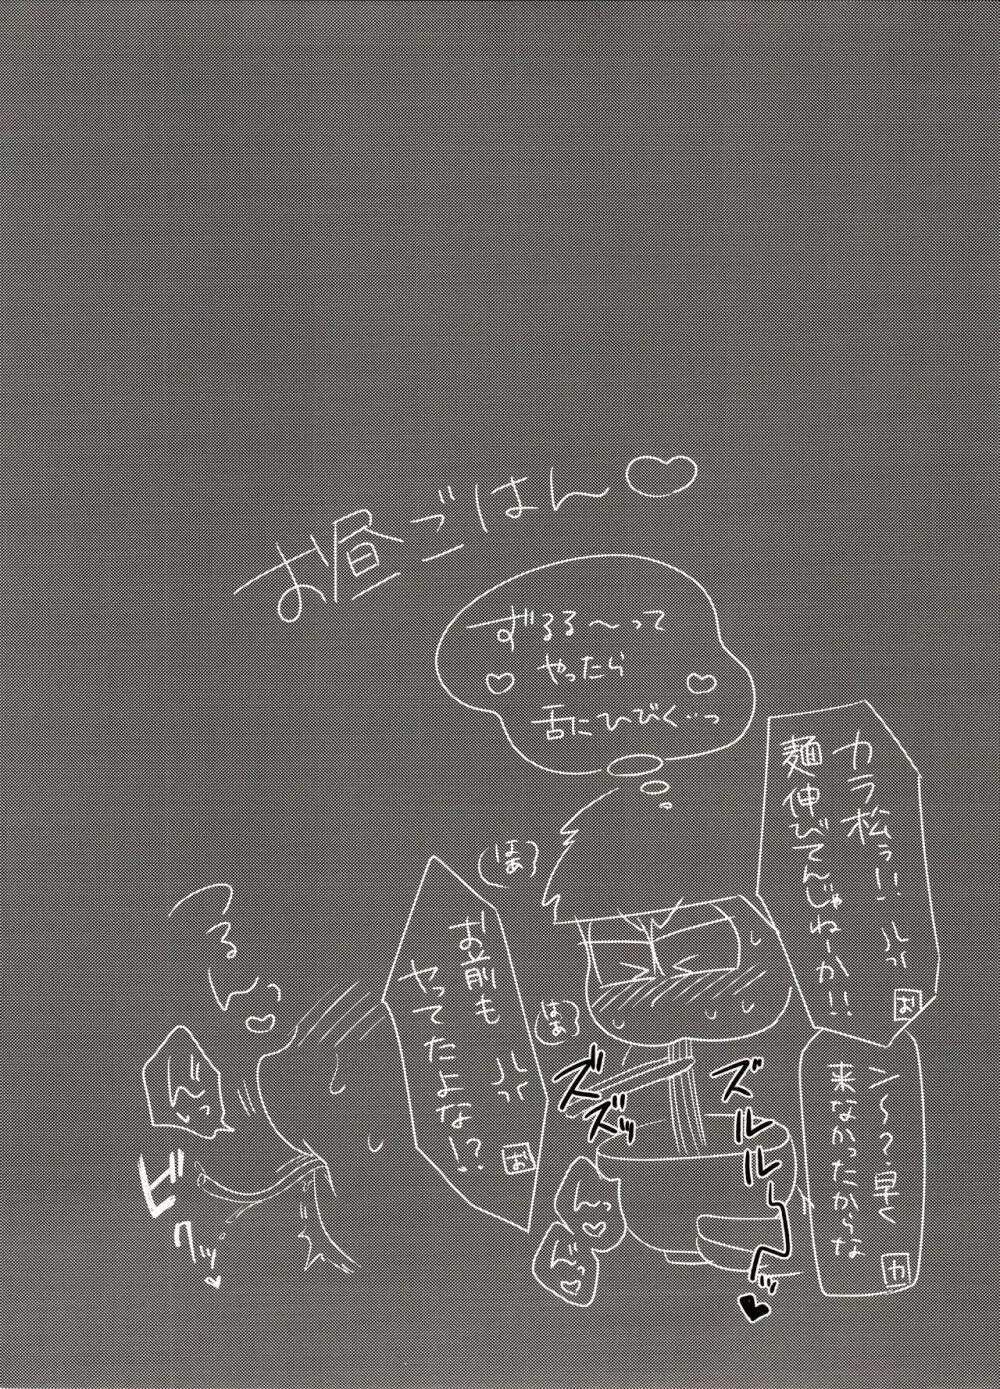 お昼ごはん♡
ずるる～って
やったら
舌にひびく…っ
カラ松ぅ!!
麺伸びてんじゃねーか!!
お
ン～?早く
来なかったからな
カ
はあっ
お前も
やってたよな!?
お
はあっ
ズズッ
ズルルル～ッ♥
んっ♡
んっ♡
つるんっ♡
んっ
ビクッ♥